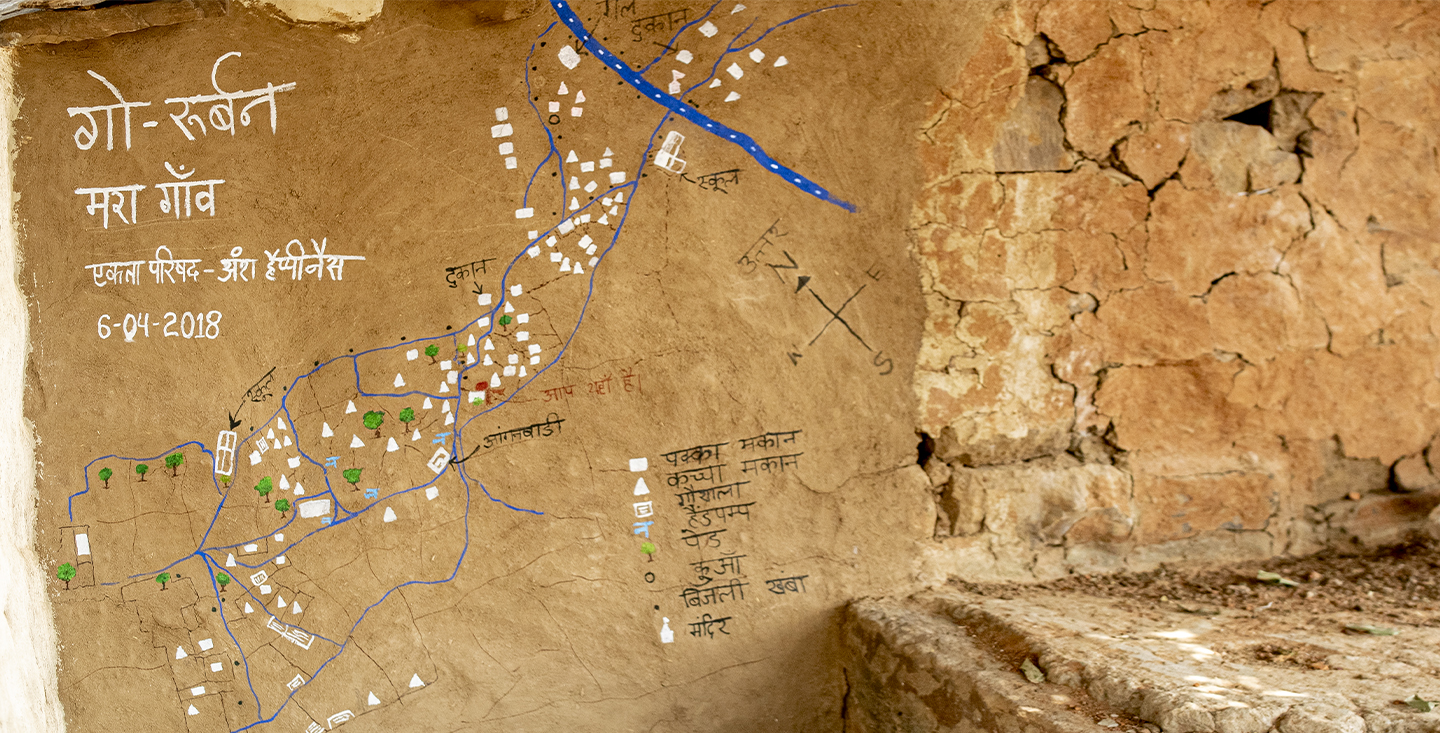 गो-रूर्बन
मरा गाँव
एकता परिषद - अंश हैप्पीनैस
6-04-2018
दुकान
स्कूल
उत्तर
N
E
W
S
दुकान
स्कूल
आप यहाँ है।
आंगनवाडी
पक्का मकान
कच्चा मकान
गौशाला
हैंडपम्प
पेड
कुआँ
बिजली खंबा
मंदिर